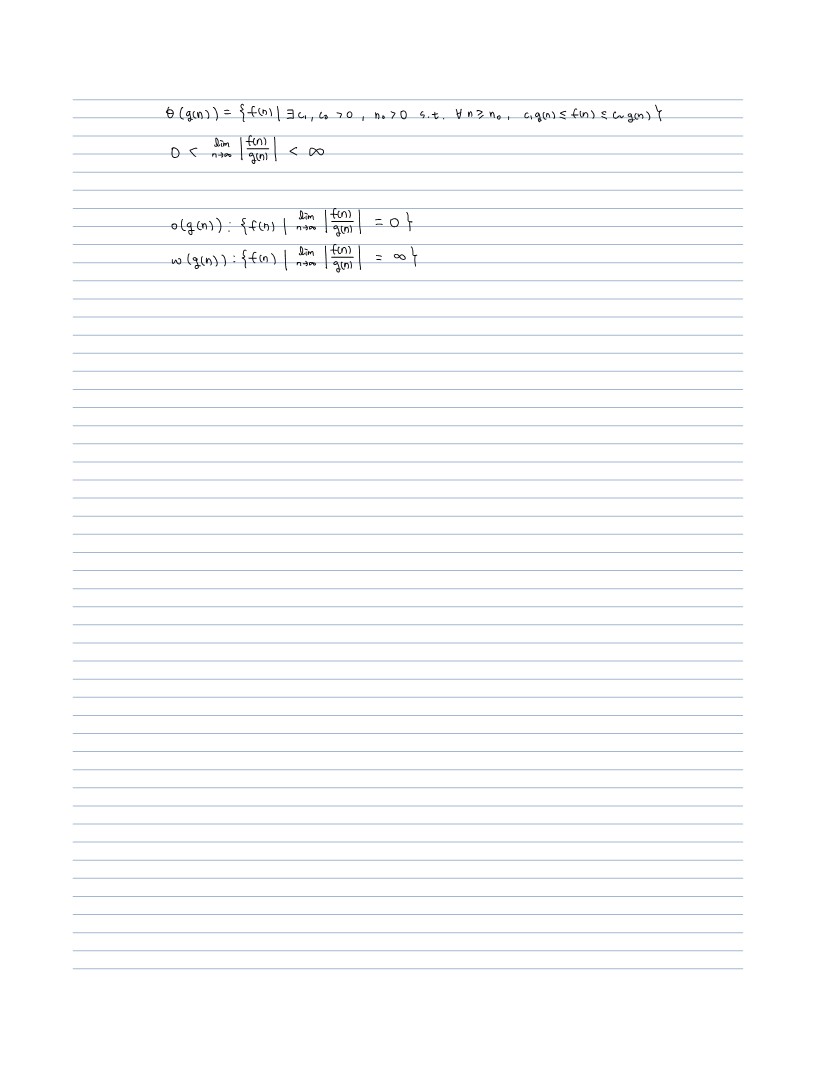 θ(g(n)) = {f(n) | ∃ c₁, c₂ > 0, n₀ > 0 s.t. ∀ n ≥ n₀, c₁g(n) ≤ f(n) ≤ c₂g(n)}
0 < lim n→∞ |f(n)/g(n)| < ∞
o(g(n)) : {f(n) | lim n→∞ |f(n)/g(n)| = 0}
w(g(n)) : {f(n) | lim n→∞ |f(n)/g(n)| = ∞}